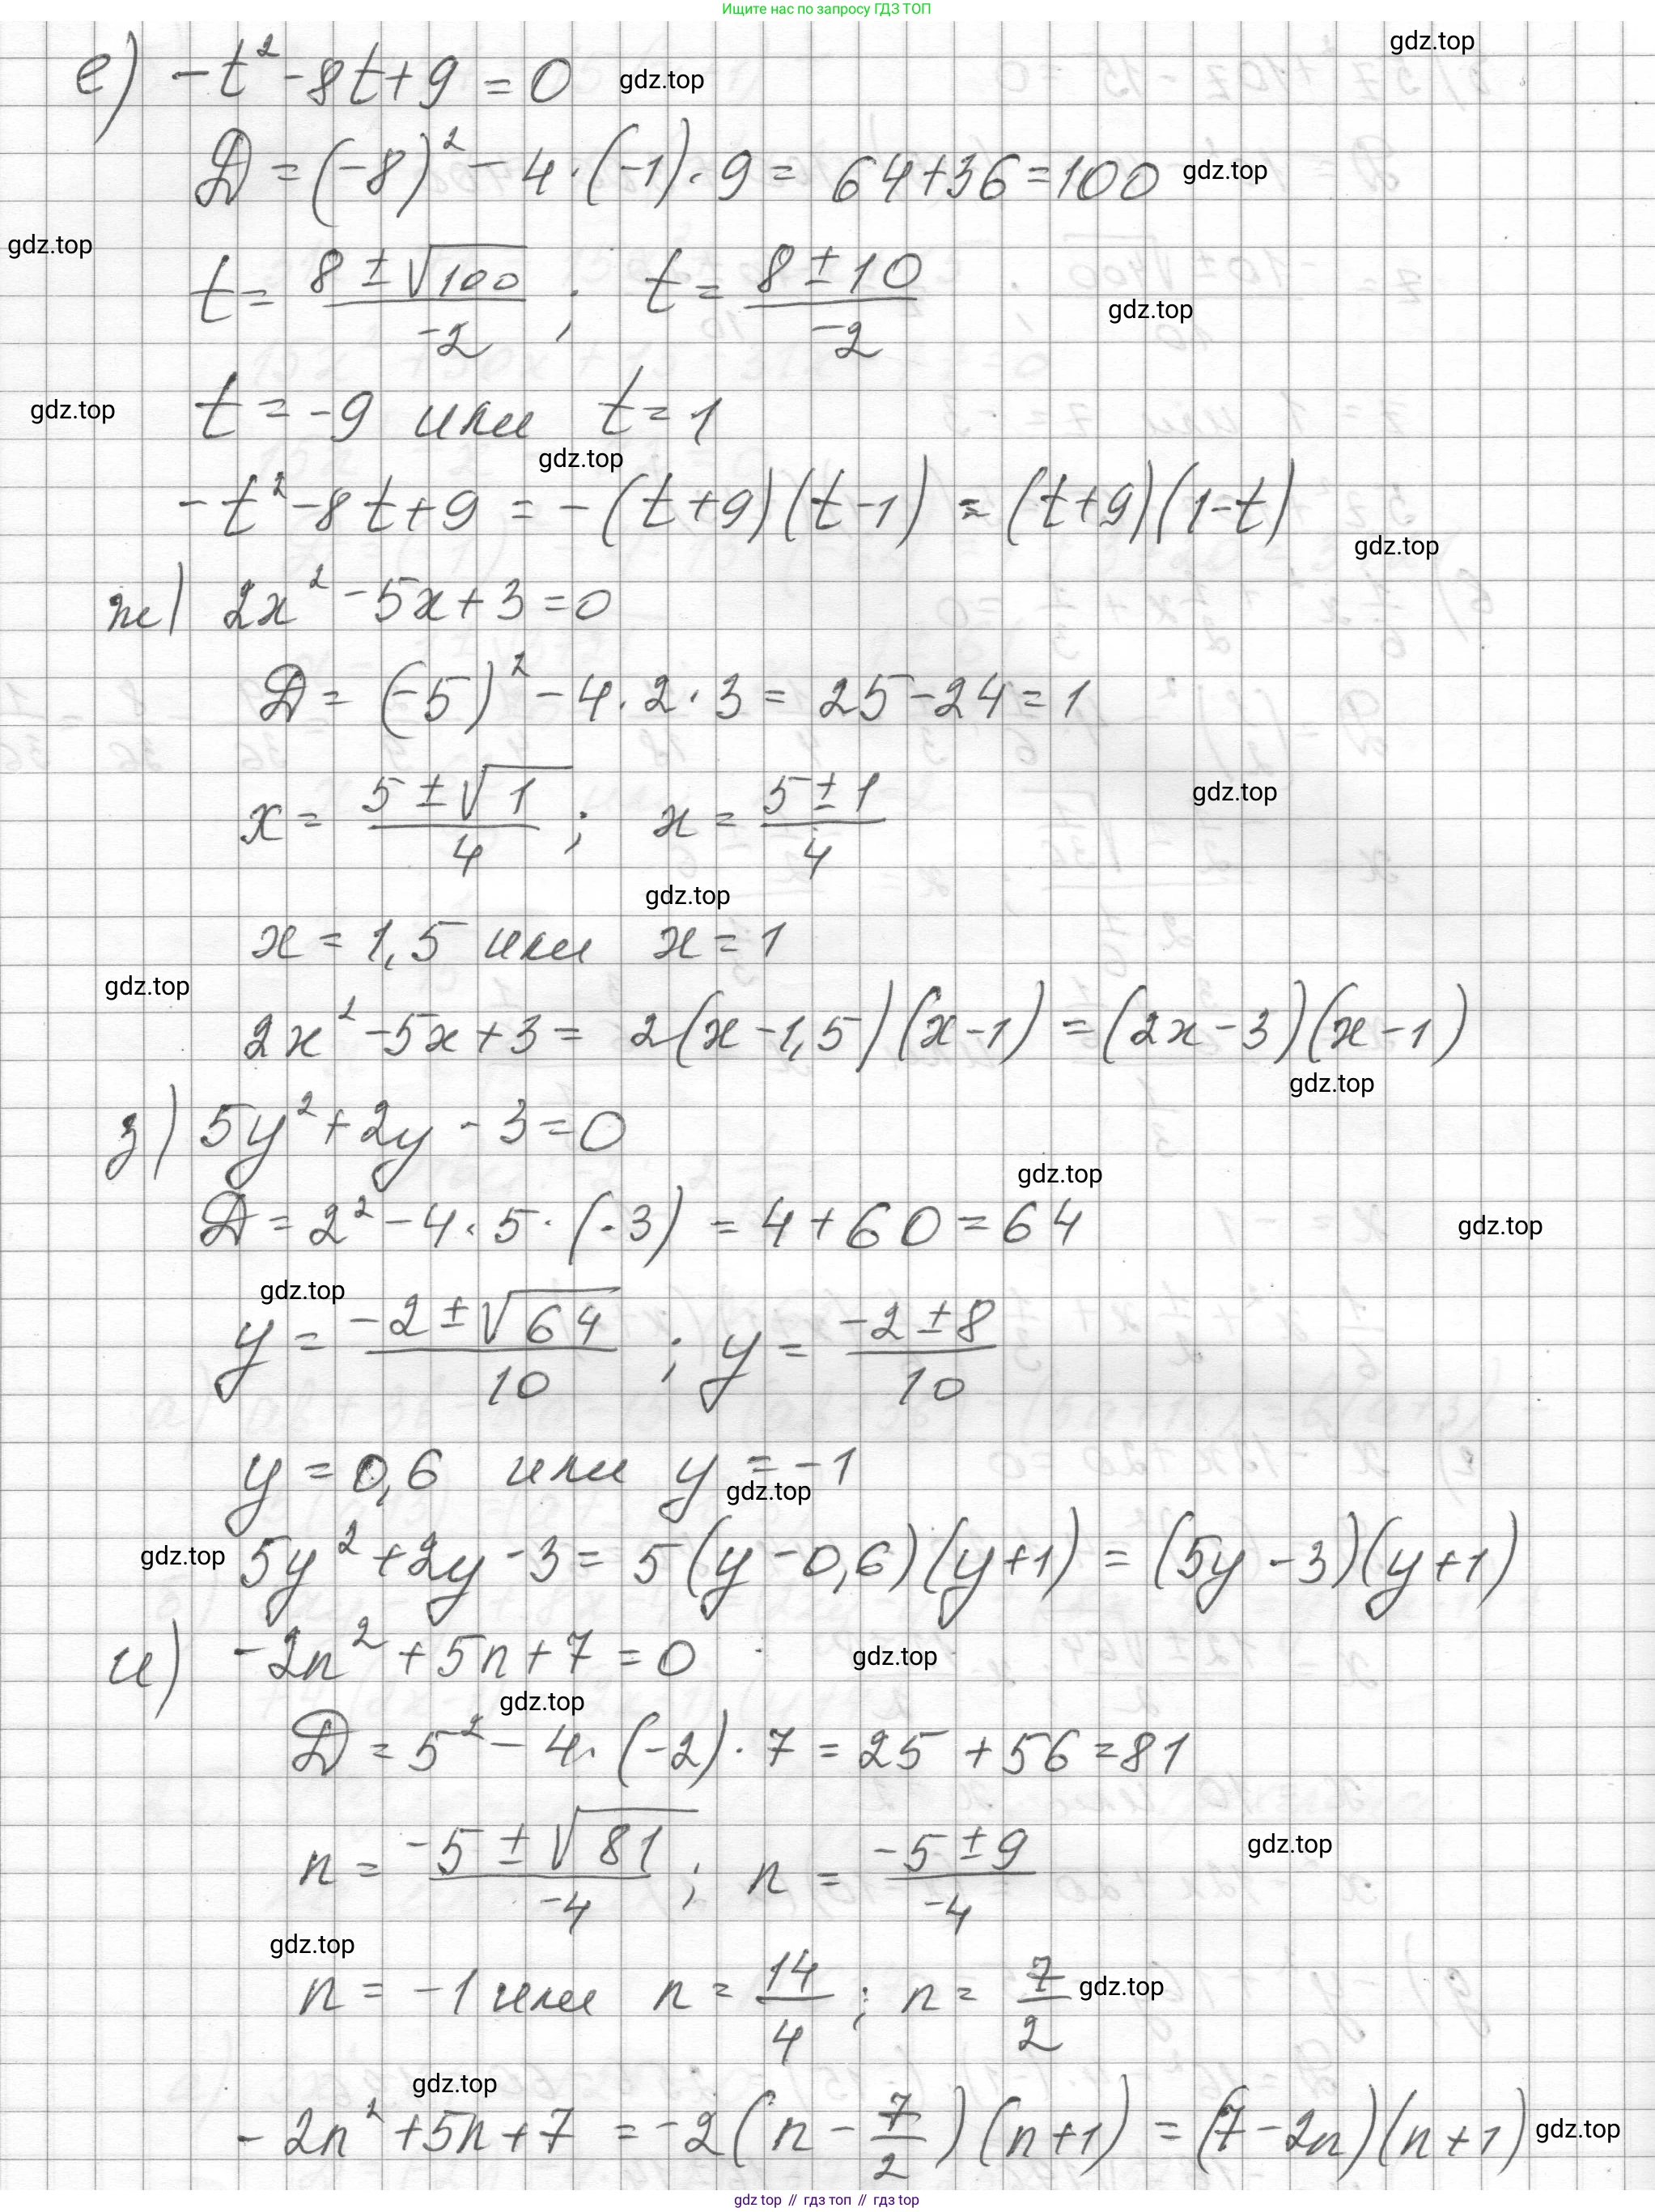 Ищите нас по запросу ГДЗ ТОП
gdz.top
е) -t² - 8t + 9 = 0 gdz.top
D = (-8)² - 4·(-1)·9 = 64 + 36 = 100 gdz.top
gdz.top
t = (8 ± √100)/-2 ; t = (8 ± 10)/-2 gdz.top
gdz.top t = -9 или t = 1
gdz.top
-t² - 8t + 9 = -(t + 9)(t - 1) = (t + 9)(1 - t)
gdz.top
ж) 2x² - 5x + 3 = 0
D = (-5)² - 4·2·3 = 25 - 24 = 1
x = (5 ± √1)/4 ; x = (5 ± 1)/4 gdz.top
gdz.top
x = 1,5 или x = 1
gdz.top
2x² - 5x + 3 = 2(x - 1,5)(x - 1) = (2x - 3)(x - 1)
gdz.top
з) 5y² + 2y - 3 = 0
gdz.top
D = 2² - 4·5·(-3) = 4 + 60 = 64 gdz.top
gdz.top
y = (-2 ± √64)/10 ; y = (-2 ± 8)/10
y = 0,6 или y = -1
gdz.top
gdz.top 5y² + 2y - 3 = 5(y - 0,6)(y + 1) = (5y - 3)(y + 1)
и) -2n² + 5n + 7 = 0 gdz.top
gdz.top
D = 5² - 4·(-2)·7 = 25 + 56 = 81
n = (-5 ± √81)/-4 ; n = (-5 ± 9)/-4 gdz.top
gdz.top
n = -1 или n = 14/4 ; n = 7/2 gdz.top
gdz.top
-2n² + 5n + 7 = -2(n - 7/2)(n + 1) = (7 - 2n)(n + 1) gdz.top
gdz top // гдз топ // гдз top